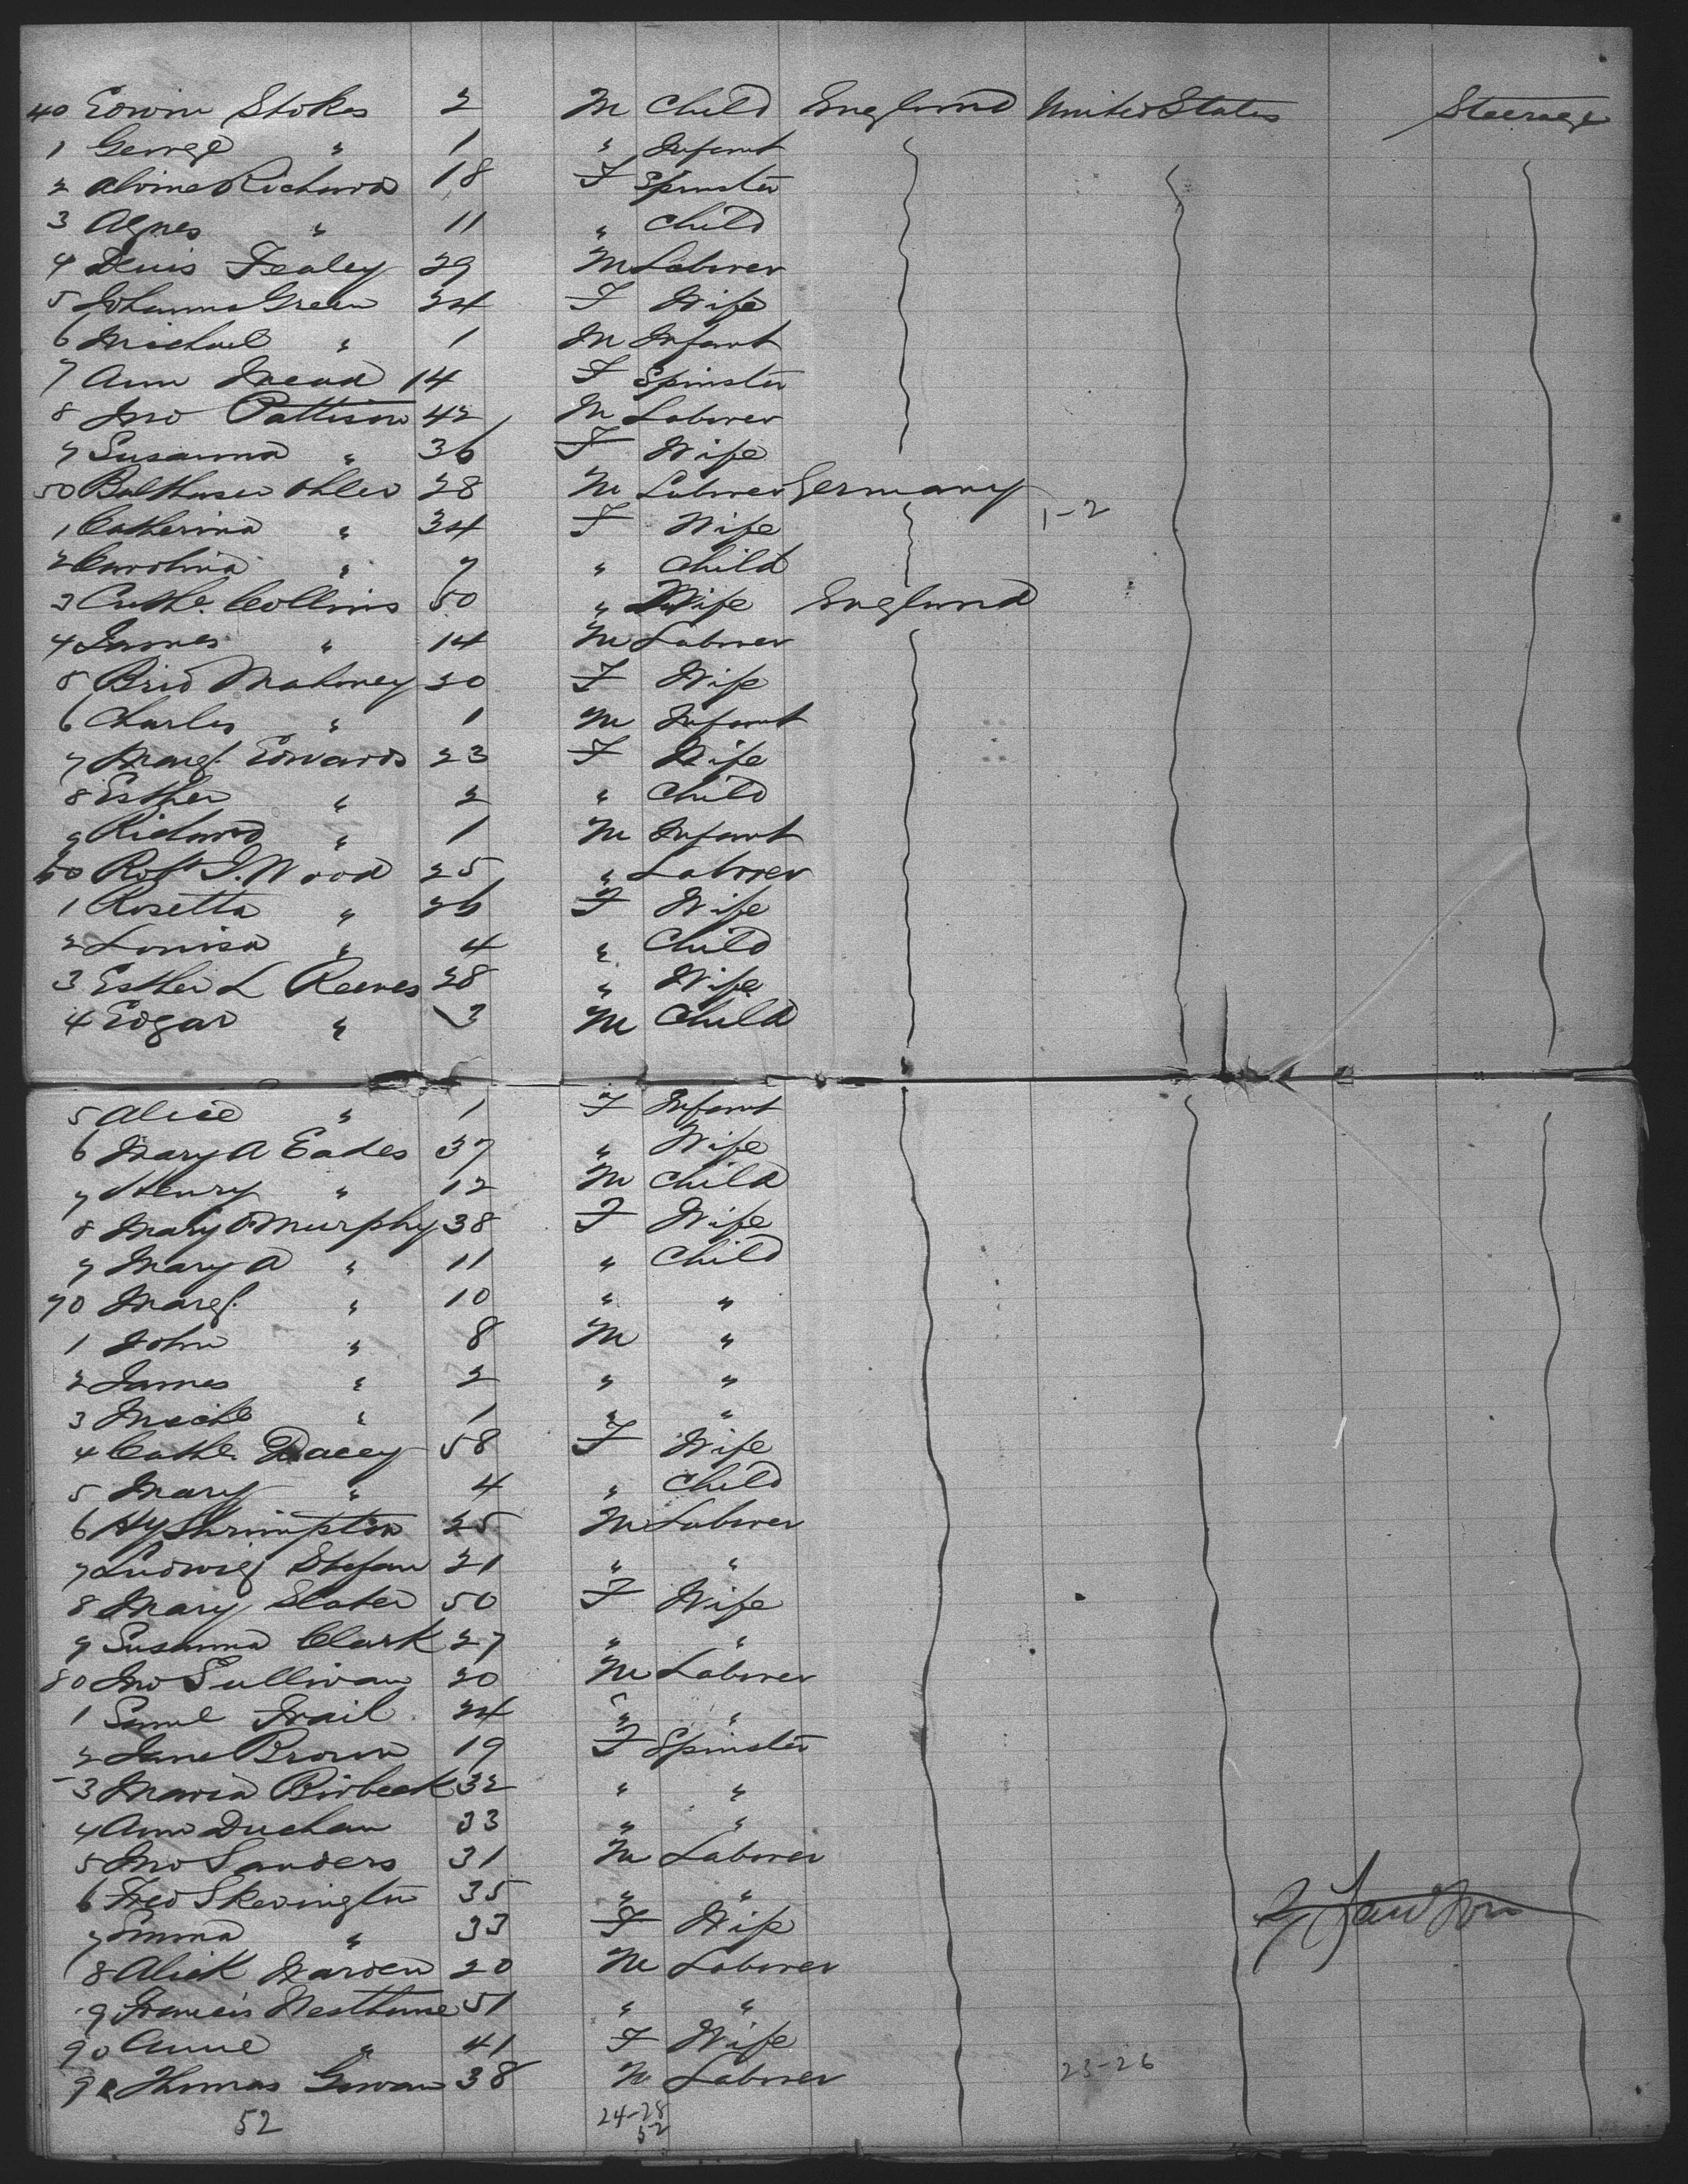 40 Edwin Stokes 2 M Child England United States Steerage
1 George " 1 " Infant
2 Alvina Richards 18 F Spinster
3 Agnes " 11 " Child
4 Denis Fealey 29 M Laborer
5 Johanna Green 24 F Wife
6 Michael " 1 M Infant
7 Ann Mead 14 F Spinster
8 Jno Pattison 42 M Laborer
9 Susanna " 36 F Wife
50 Balthaser Ohler 28 M Laborer Germany 1-2
1 Catherina " 34 F Wife
2 Carolina " 7 " Child
3 Cathe. Collins 50 " Wife England
4 James " 14 M Laborer
5 Brid Mahoney 30 F Wife
6 Charles " 1 M Infant
7 Margt. Edwards 23 F Wife
8 Esther " 2 " Child
9 Richard " 1 M Infant
60 Robt J. Wood 25 " Laborer
1 Rosetta " 26 F Wife
2 Louisa " 4 " Child
3 Esther L Reeves 28 " Wife
4 Edgar " 3 M Child
5 Alice " 1 F Infant
6 Mary A Eades 37 " Wife
7 Henry " 12 M Child
8 Mary Murphy 38 F Wife
9 Mary A " 11 " Child
70 Margt. " 10 " "
1 John " 8 M "
2 James " 2 " "
3 Michl " 1 " "
4 Cathe. Dacey 58 F Wife
5 Mary " 4 " Child
6 Hy Shrimpton 25 M Laborer
7 Ludwig Stefan 21 " "
8 Mary Slater 50 F Wife
9 Susanna Clark 27 " "
80 Jno Sullivan 20 M Laborer
1 Saml Frail 24 " "
2 Jane Brown 19 F Spinster
3 Maria Birbeck 32 " "
4 Ann 33 " "
5 Jno Sanders 31 M Laborer
6 Fred Skevington 35 " "
7 Emma " 33 F Wife
8 Alick Warden 20 M Laborer
9 Francis 51 " "
90 Anne " 41 F Wife
91 Thomas Gowan 38 M Laborer 23-26
52 24-28
52